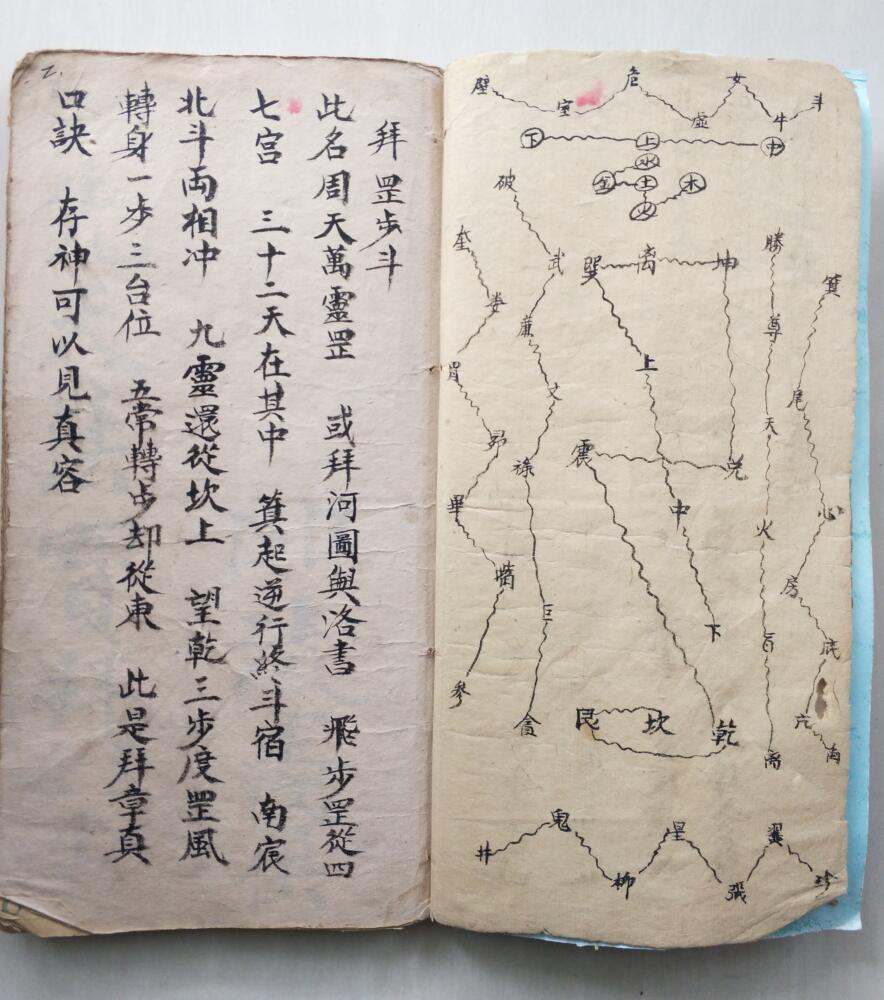 拜罡步斗
此名周天萬靈罡 或拜河圖與洛書 飛步罡從四
七宮 三十二天在其中 箕起逆行終斗宿 南宸
北斗両相冲 九靈還從坎上 望乾三步度罡風
轉身一步三台位 五常轉步却從東 此是拜章真
口訣 存神可以見真容
斗 牛 女 虛 危 室 壁
中 上 下
水
木 土 金
火
箕 尾 心 房 氐 亢 角
勝 尊 天 火 离
坤 离 巽
上 中 下
兌 震
乾 坎 艮
破 武 廉 文 祿 巨
奎 婁 胃 昴 畢 觜 參
軫 翼 張 星 柳 鬼 井